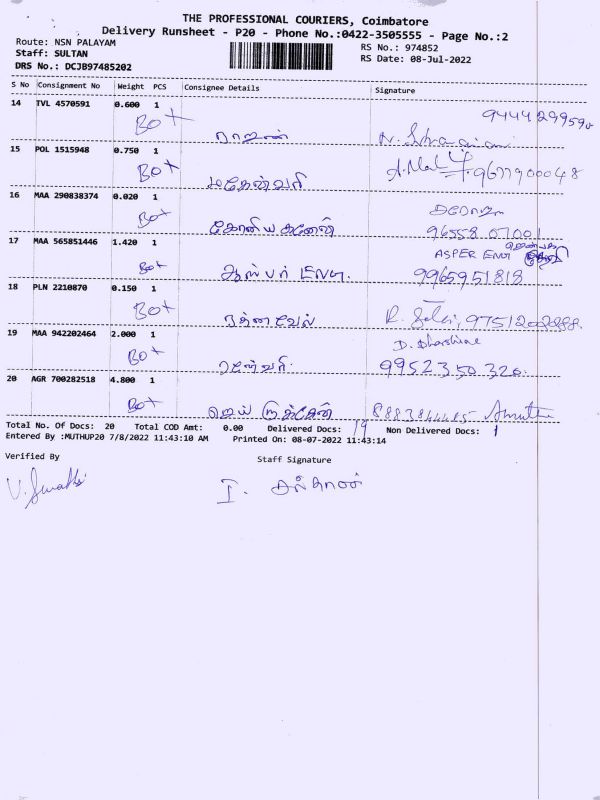 THE PROFESSIONAL COURIERS, Coimbatore
Delivery Runsheet - P20 - Phone No.:0422-3505555 - Page No.:2
Route: NSN PALAYAM
RS No.: 974852
Staff: SULTAN
RS Date: 08-Jul-2022
DRS No.: DCJB97485202
S No Consignment No Weight PCS Consignee Details Signature
14 TVL 4570591 0.600 1
Box ராஜன்
15 POL 1515948 0.750 1
Box மகேஸ்வரி 9677900048
16 MAA 290838374 0.020 1
Box 96558 07001
17 MAA 565851446 1.420 1 ASPER ENGG
Box ஆஸ்பர் ENGG. 9965951818
18 PLN 2210870 0.150 1
Box ரத்னவேல்
19 MAA 942202464 2.000 1 D. Dharshine
Box 9952350320
20 AGR 700282518 4.800 1
Box
Total No. Of Docs: 20 Total COD Amt: 0.00 Delivered Docs: 19 Non Delivered Docs: 1
Entered By :MUTHUP20 7/8/2022 11:43:10 AM Printed On: 08-07-2022 11:43:14
Verified By Staff Signature
I. சுல்தான்